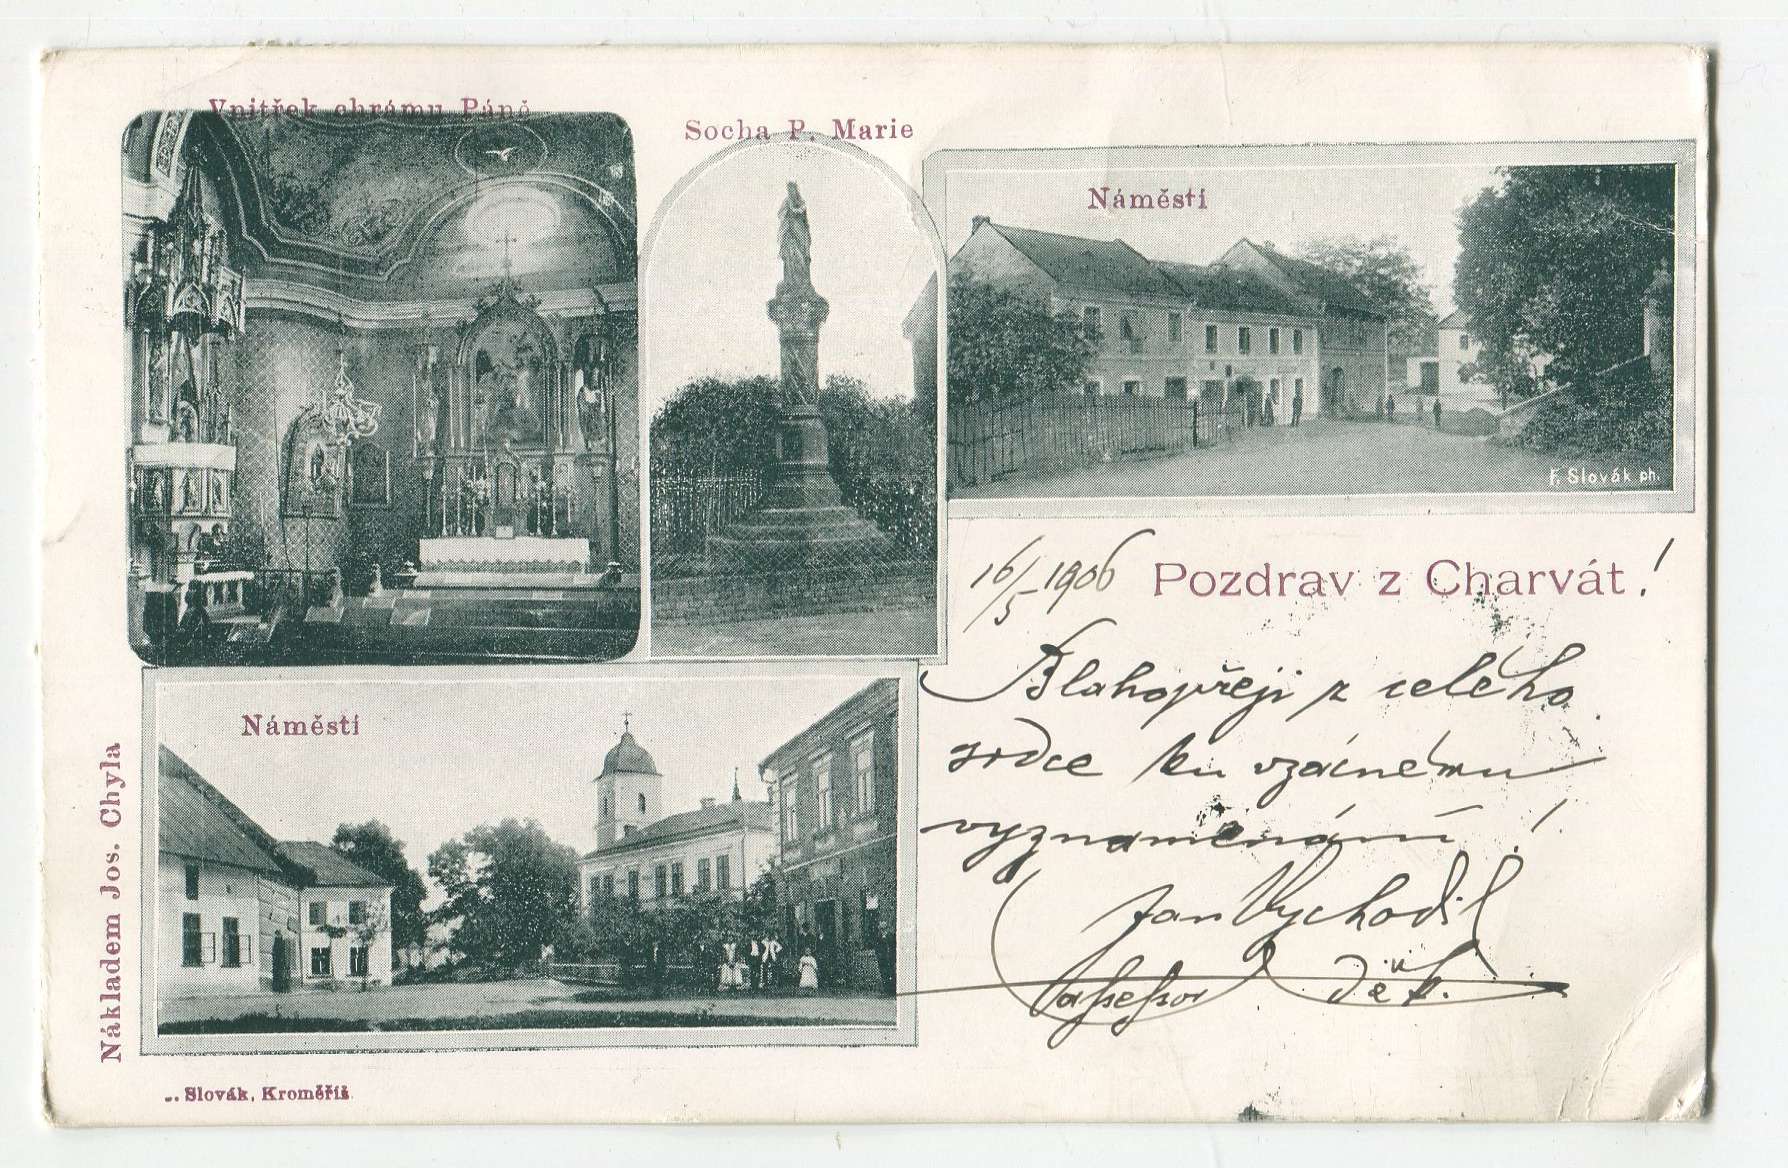 Vnitřek chrámu Páně
Socha P. Marie
Náměstí
F. Slovák ph.
16/5 1906
Pozdrav z Charvát!
Blahopřeji z celého
srdce ku vzácnému
vyznamenání!
Jan Vychodil
assessor děk.
Náměstí
Nákladem Jos. Chyla
Slovák, Kroměříž